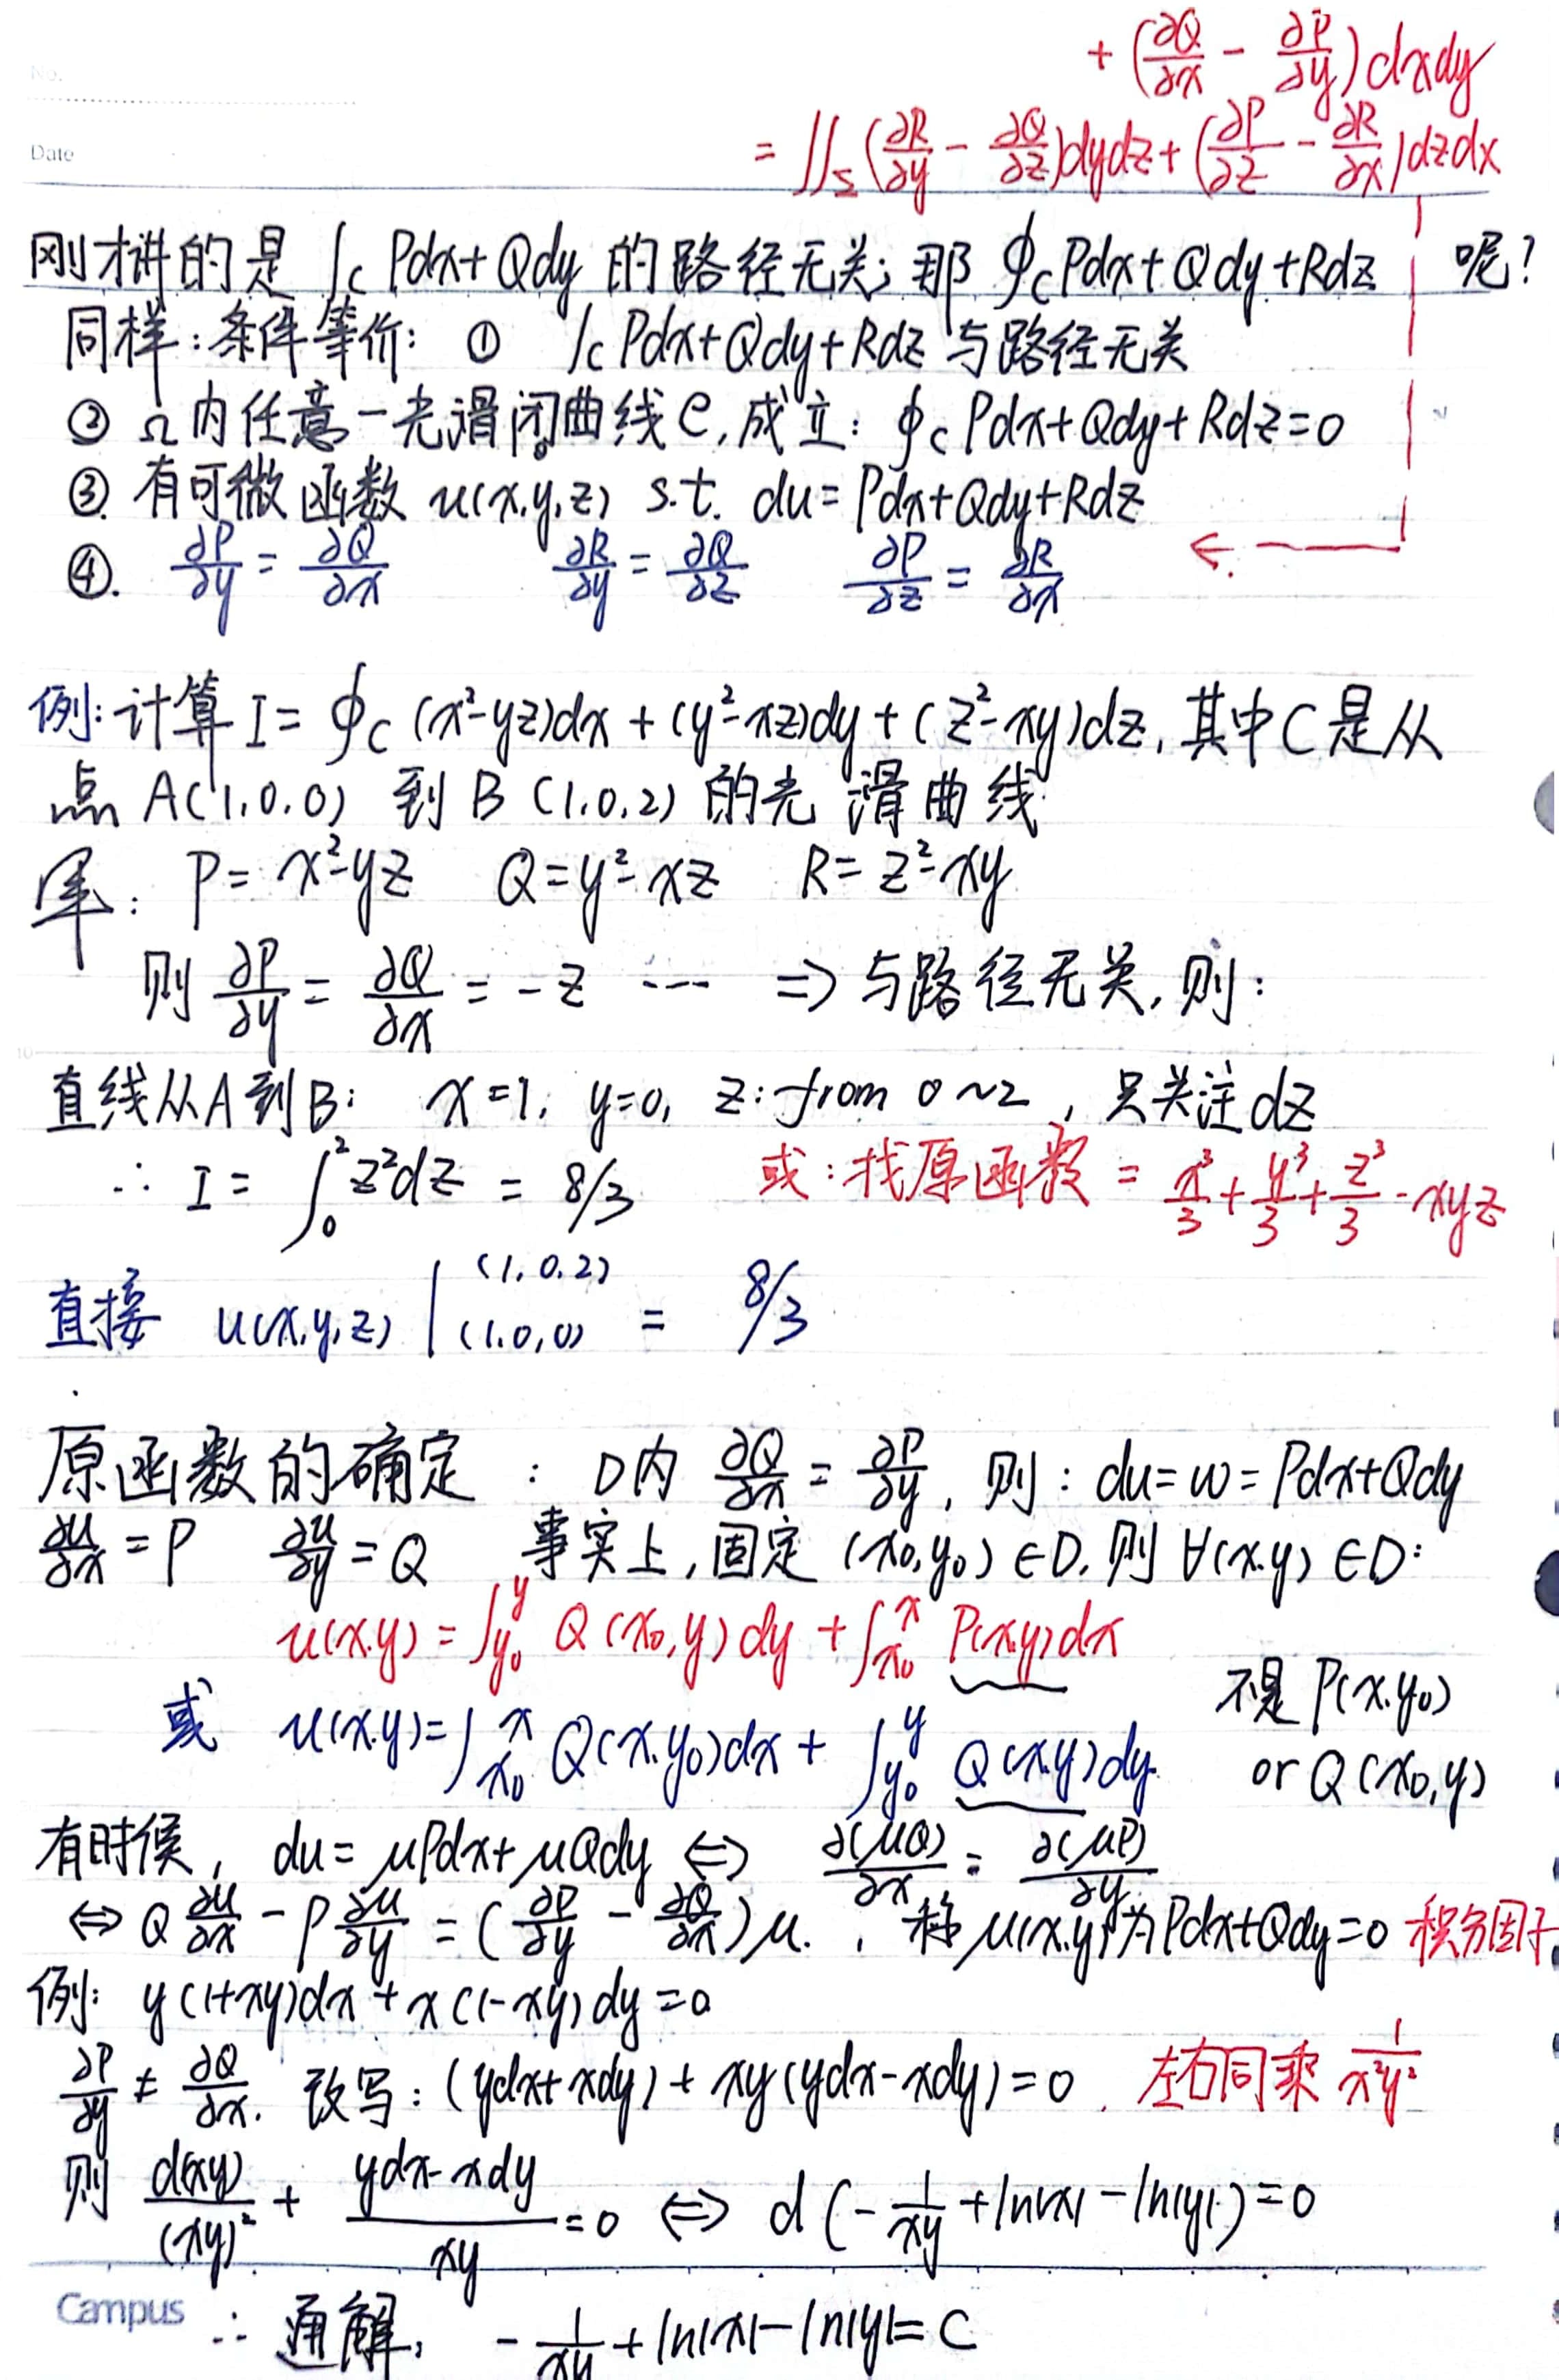 No.
Date
+ (∂Q/∂x - ∂P/∂y) dxdy
= ∬_Σ (∂R/∂y - ∂Q/∂z)dydz + (∂P/∂z - ∂R/∂x)dzdx
刚才讲的是 ∫_C Pdx+Qdy 的路径无关; 那 ∮_C Pdx+Qdy+Rdz 呢?
同样: 条件等价: ① ∫_C Pdx+Qdy+Rdz 与路径无关
② Ω内任意一光滑闭曲线C, 成立: ∮_C Pdx+Qdy+Rdz=0
③ 有可微函数 u(x,y,z) s.t. du=Pdx+Qdy+Rdz
④. ∂P/∂y = ∂Q/∂x ∂R/∂y = ∂Q/∂z ∂P/∂z = ∂R/∂x
例: 计算 I = ∮_C (x²-yz)dx + (y²-xz)dy + (z²-xy)dz, 其中C是从
点 A(1,0,0) 到 B(1,0,2) 的光滑曲线
解: P = x²-yz Q = y²-xz R = z²-xy
则 ∂P/∂y = ∂Q/∂x = -z ⋯ ⇒ 与路径无关, 则:
直线从A到B: x=1, y=0, z: from 0~2, 只关注dz
∴ I = ∫₀² z²dz = 8/3 或: 找原函数 = x³/3 + y³/3 + z³/3 - xyz
直接 u(x,y,z) |_(1,0,0)^(1,0,2) = 8/3
原函数的确定: D内 ∂Q/∂x = ∂P/∂y, 则: du=w=Pdx+Qdy
∂u/∂x = P ∂u/∂y = Q 事实上, 固定 (x₀,y₀)∈D, 则 ∀(x,y)∈D:
u(x,y) = ∫_{y₀}^{y} Q(x₀,y)dy + ∫_{x₀}^{x} P(x,y)dx
不是 P(x,y₀)
或 u(x,y) = ∫_{x₀}^{x} Q(x,y₀)dx + ∫_{y₀}^{y} Q(x,y)dy
or Q(x₀,y)
有时候, du = μPdx+μQdy ⇔ ∂(μQ)/∂x = ∂(μP)/∂y
⇔ Q ∂μ/∂x - P ∂μ/∂y = (∂P/∂y - ∂Q/∂x)μ. , 称μ(x,y)为Pdx+Qdy=0 积分因子
例: y(1+xy)dx + x(1-xy)dy = 0
∂P/∂y ≠ ∂Q/∂x. 改写: (ydx+xdy) + xy(ydx-xdy) = 0. 左右同乘 1/x²y²
则 d(xy)/(xy)² + (ydx-xdy)/xy = 0 ⇔ d(-1/xy + ln|x| - ln|y|) = 0
Campus
∴ 通解: -1/xy + ln|x| - ln|y| = C